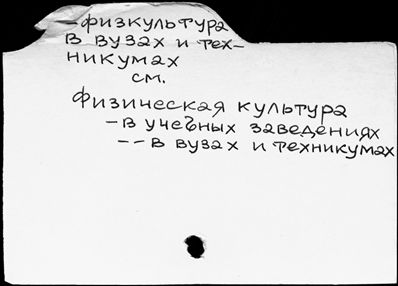 -физкультура
в вузах и тех-
никумах
см.
Физическая культура
-в учебных заведениях
--в вузах и техникумах